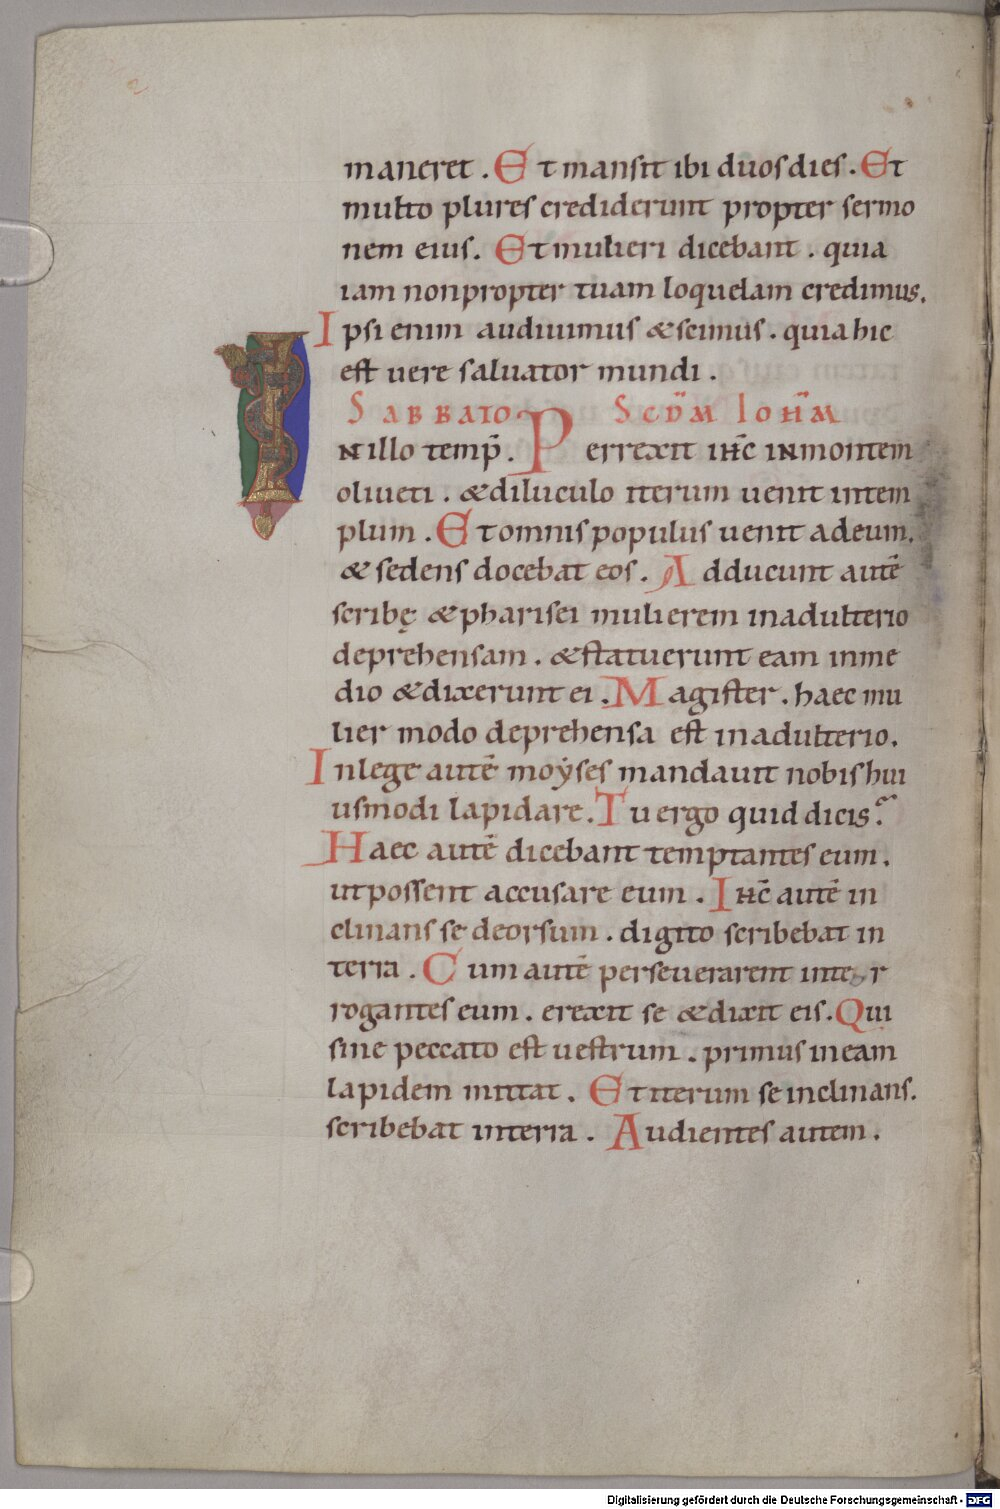 maneret . Et mansit ibi duos dies . Et
multo plures crediderunt propter sermo
nem eius . Et mulieri dicebant . quia
iam non propter tuam loquelam credimus .
Ipsi enim audiuimus & scimus . quia hic
est uere saluator mundi .
SABBATO SCD̄M IOHĒM
IN illo temp̄ . Perrexit ihc̄ in montem
oliueti . & diluculo iterum uenit in tem
plum . Et omnis populus uenit ad eum .
& sedens docebat eos . Adducunt autē
scribę & pharisei mulierem in adulterio
deprehensam . & statuerunt eam in me
dio & dixerunt ei . Magister . haec mu
lier modo deprehensa est in adulterio .
In lege autē moẏses mandauit nobis hui
usmodi lapidare . Tu ergo quid dicis ?
Haec autē dicebant temptantes eum .
ut possent accusare eum . Ihc̄ autē in
clinans se deorsum . digito scribebat in
terra . Cum autē perseuerarent inter
rogantes eum . erexit se & dixit eis . Qui
sine peccato est uestrum . primus in eam
lapidem mittat . Et iterum se inclinans .
scribebat in terra . Audientes autem .
Digitalisierung gefördert durch die Deutsche Forschungsgemeinschaft - DFG